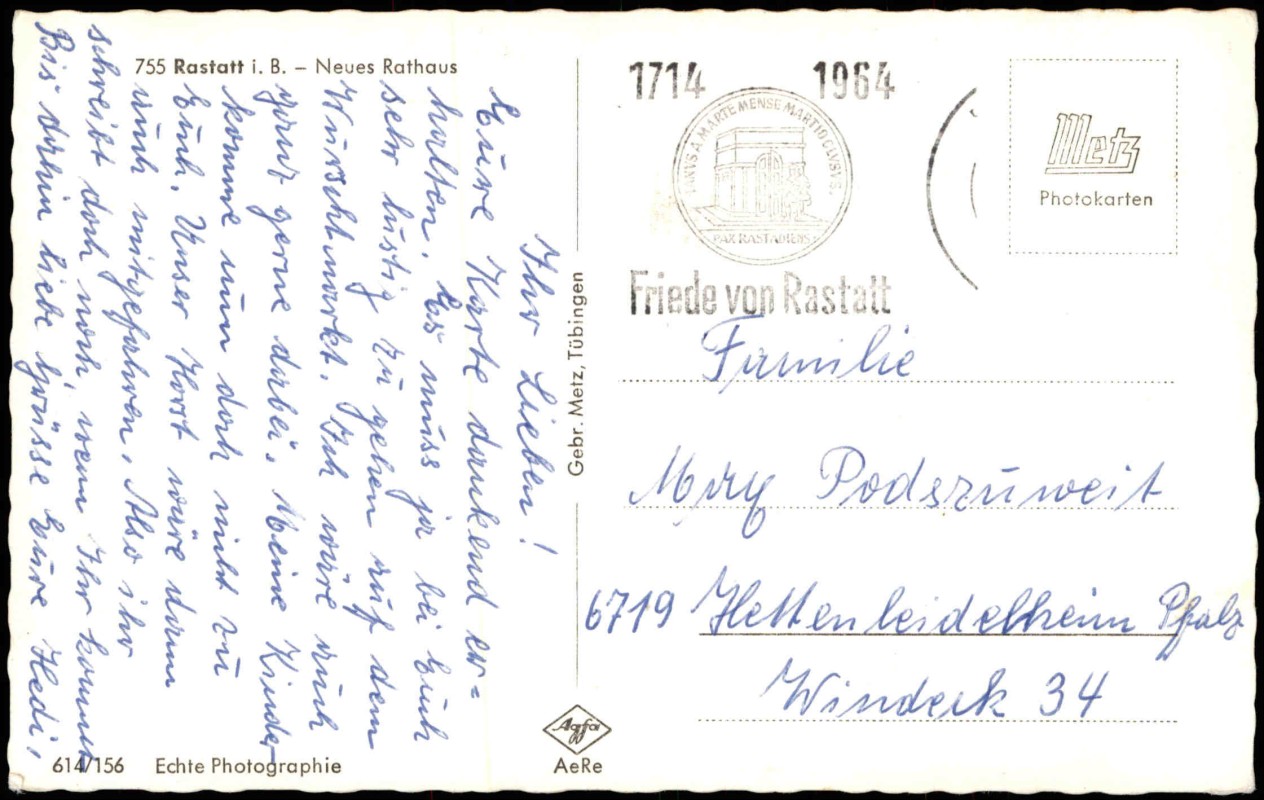 755 Rastatt i. B. – Neues Rathaus
Ihr Lieben!
Eure Karte dankend er=
halten. Es muss ja bei Euch
sehr lustig zu gehen auf dem
Wurschtmarkt. Ich wäre auch
ganz gerne dabei. Meine Kinder
komme nun doch nicht zu
Euch. Unser Horst wäre dann
auch mitgefahren. Also ihr
schreibt doch noch, wenn Ihr kommt
Bis dahin liebe Grüsse Eure Hedi.
614/156 Echte Photographie
Gebr. Metz, Tübingen
Agfa
AeRe
1714 1964
VNVS A MARTE MENSE MARTIO CLVSVS
PAX RASTADIENS
Friede von Rastatt
Metz
Photokarten
Familie
Podszuweit
6719 Hettenleidelheim Pfalz
Windeck 34